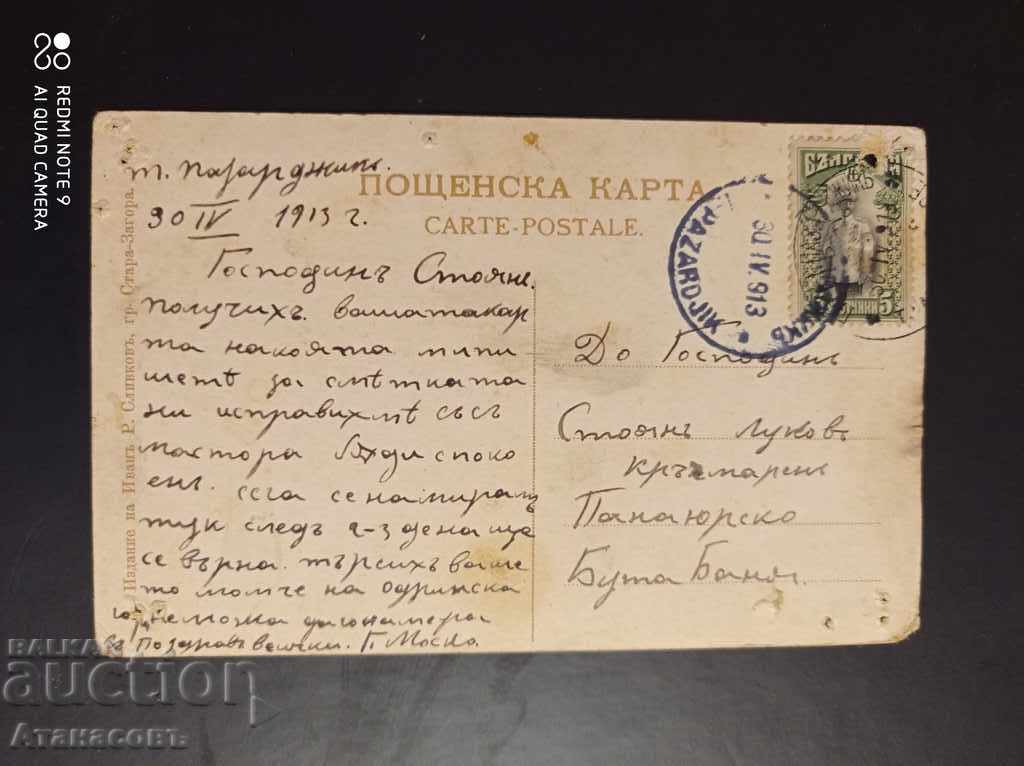 REDMI NOTE 9
AI QUAD CAMERA
ПОЩЕНСКА КАРТА
CARTE-POSTALE.
Издание на Иванъ Р. Сливковъ, гр. Стара-Загора.
т. Пазарджикъ.
30 IV 1913 г.
Господинъ Стояне.
получихъ вашата кар
та на която ми пи
шетѣ за смѣтката
ни исправихмѣ със
мастора бѫди споко
енъ. сега се намирамъ
тук следъ 2-3 дена ще
се върна. търсихъ ваше
то момче на одринска
неможа да го намера
Поздравъ всички. Г. Моско.
PAZARDJIK
30 IV 913
5
До Господинъ
Стоянъ Луковъ
кръчмаринъ
Панагюрско
Бута Баня.
BALKAN
auction
Атанасовъ